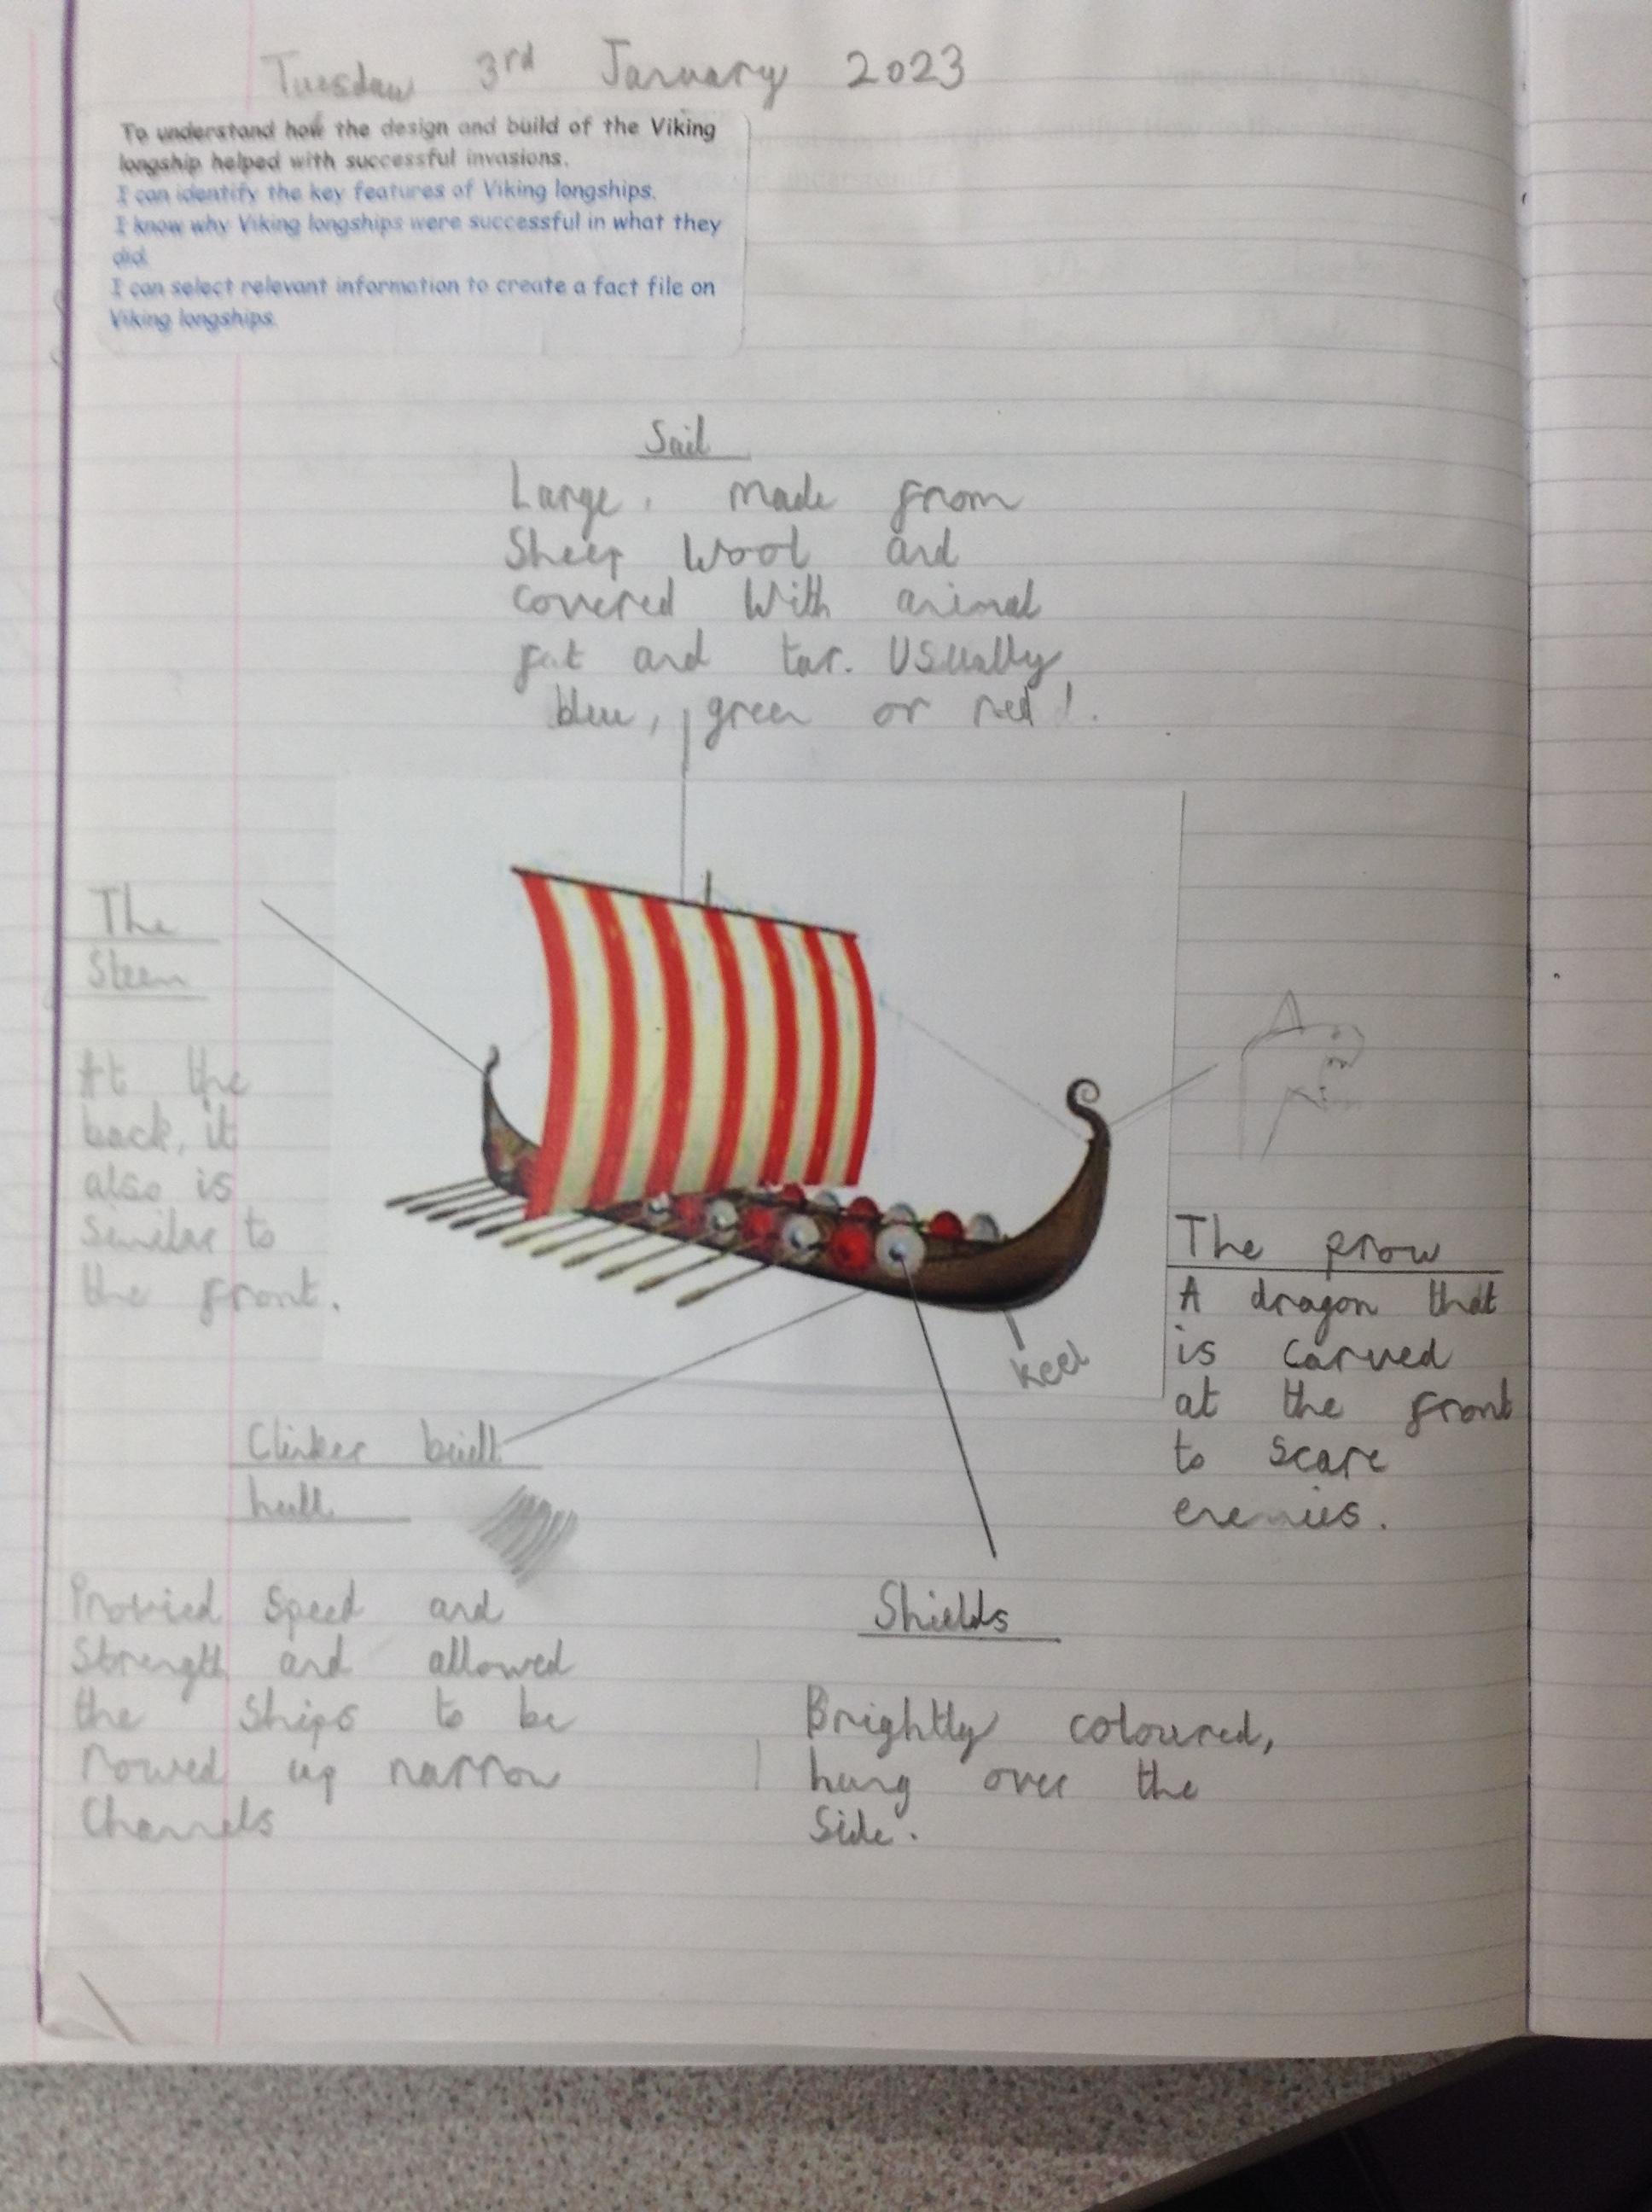 Tuesday 3rd January 2023
To understand how the design and build of the Viking
longship helped with successful invasions.
I can identify the key features of Viking longships.
I know why Viking longships were successful in what they
did.
I can select relevant information to create a fact file on
Viking longships.
Sail
Large, made from
Sheep Wool and
covered With animal
fat and tar. USually
blue, green or red!.
The
Steen
At the
back, it
also is
Similar to
the front.
keel
The prow
A dragon that
is carved
at the front
to scare
enemies.
Clinker built
hull
Provied Speed and
Strength and allowed
the Ships to be
rowed up narrow
Channels
Shields
Brightly coloured,
hung over the
Side.